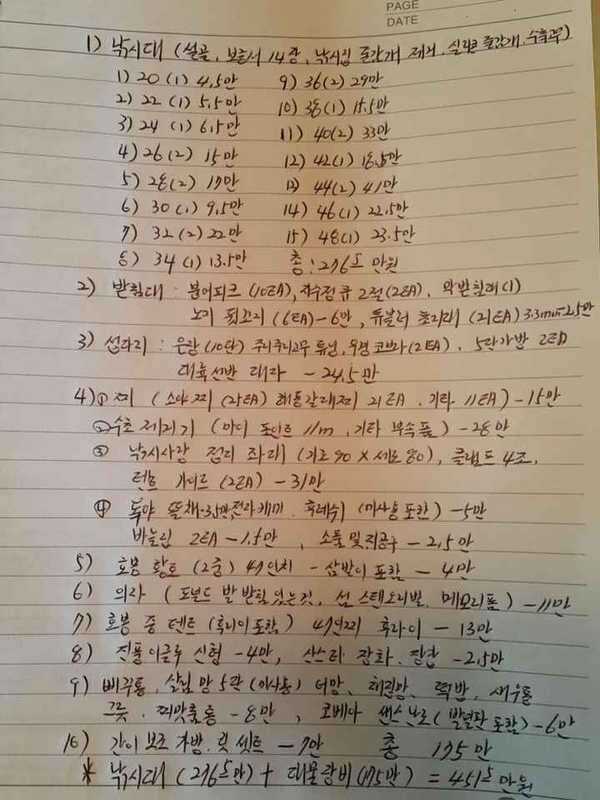 PAGE
DATE
1) 낚시대 (설골, 보증서 14장, 낚시집 줄감개 제거, 실리콘 줄감개, 수축고무)
1) 20 (1) 4,5만 9) 36(2) 29만
2) 22 (1) 5,5만 10) 38(1) 15.5만
3) 24 (1) 6,5만 11) 40(2) 33만
4) 26 (2) 15만 12) 42(1) 18,5만
5) 28(2) 17만 13) 44(2) 41만
6) 30 (1) 9,5만 14) 46(1) 22.5만
7) 32 (2) 22만 15) 48(1) 23.5만
8) 34 (1) 13.5만 총 : 276.5 만원
2) 받침대 : 붐어피크 (10EA), 자수정 큐 2절 (2EA), 앞받침대(1)
노지 뒤꽂이 (6EA) - 6만, 튜블러 초리대 (21EA) 3.3mm - 2.5만
3) 섶다리 : 은성 (10단) 튜닝, 우경 코브라 (2EA), 5단가방 2EA
대륙선반 대좌 - 24,5만
4) ① 찌 (소야찌 (25EA) 해동갈대찌 21EA, 기타 11EA) - 15만
② 수초 제거기 (마디 포인트 11m, 기타 부속품) - 28만
③ 낚시사랑 접지 좌대 (가로 90 X 세로 80), 클램프 4조,
텐트 가이드 (2EA) - 31만
④ 뜰채 - 3,5만, 전자캐미, (미사용 포함) - 5만
바늘집 2EA - 1.5만, 소품 및 지공구 - 2,5만
5) 호봉 황토 (2중) 47인치 - 삼발이 포함 - 4만
6) 의자 (발 받침 있는것, 섬 스텐소리빌, 메모리폼) - 11만
7) 호봉 중 텐트 (후라이포함) 47인치 후라이 - 13만
8) 전폴이글루 신형 - 4만, 산스타 장화, 장판 - 2.5만
9) 삐꾸통, 살림망 5단 (미사용) 대망, 채집망, 떡밥, 새우통
그릇, 찌맛춤통 - 8만, 코베아 센스난로 (발열판 포함) - 6만
10) 간이 보조 가방, 릿 셋트 - 7만 총 175만
* 낚시대 (276.5만) + 대물장비 (175만) = 451.5 만원